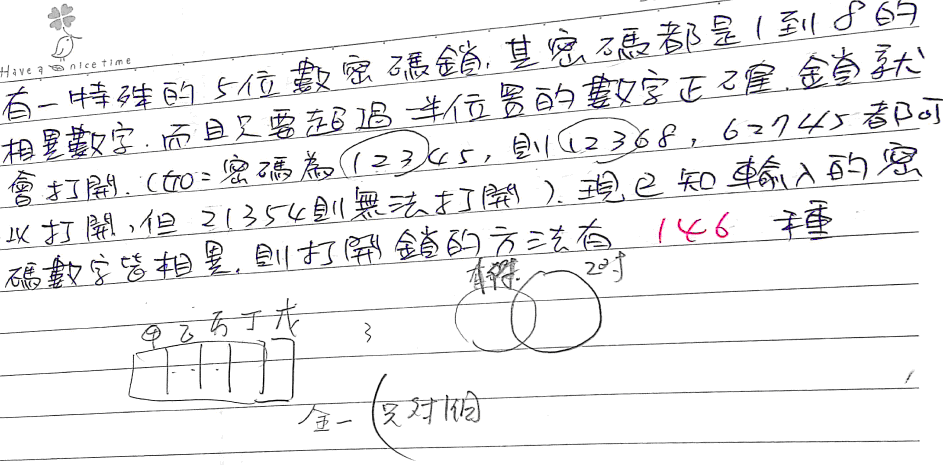 Have a nice time
有一特殊的5位數密碼鎖,其密碼都是1到8的
相異數字.而且只要超過一半位置的數字正確.鎖就
會打開.(如=密碼為12345,則12368,62745都可
以打開,但21354則無法打開).現已知輸入的密
碼數字皆相異.則打開鎖的方法有 146 種
2對
甲乙丙丁戊 3
全-(只對1個